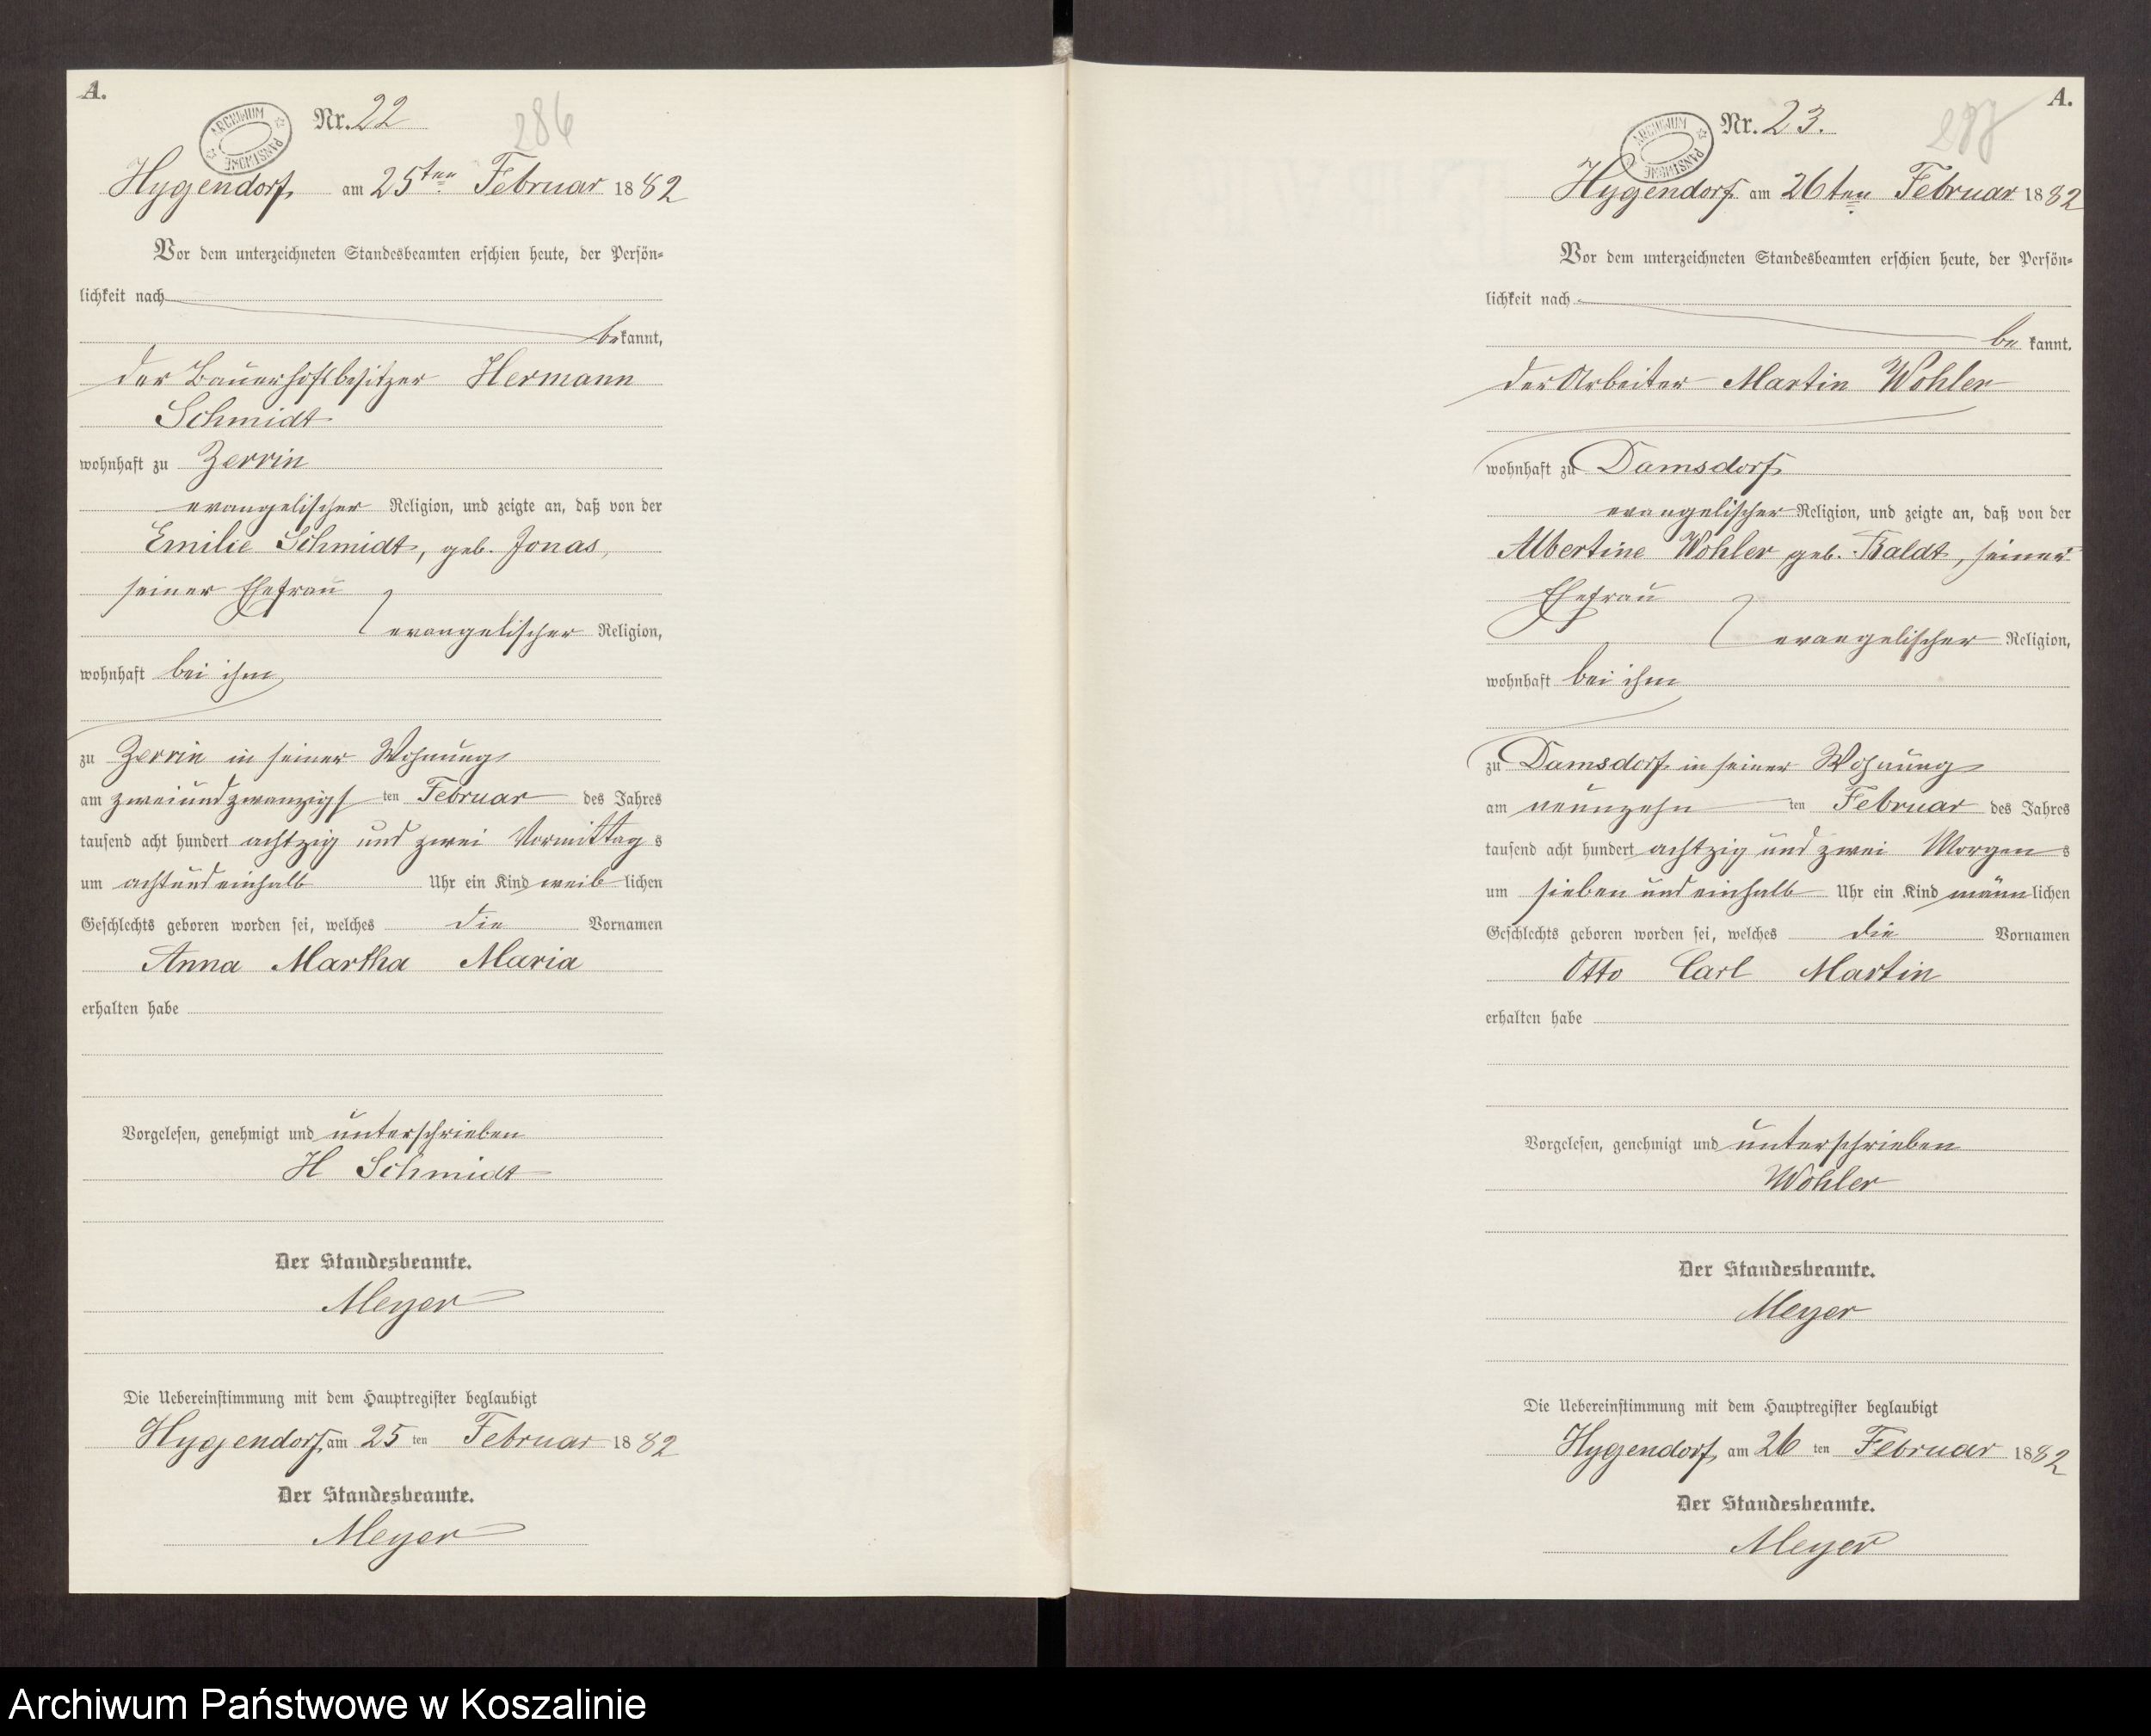 A.
ARCHIWUM PAŃSTWOWE
Nr. 22
286
Hygendorf, am 25ten Februar 1882
Vor dem unterzeichneten Standesbeamten erschien heute, der Persön-
lichkeit nach
bekannt,
der Bauerhofsbesitzer Hermann
Schmidt
wohnhaft zu Zerrin
evangelischer Religion, und zeigte an, daß von der
Emilie Schmidt, geb. Jonas,
seiner Ehefrau
evangelischer Religion,
wohnhaft bei ihm,
zu Zerrin in seiner Wohnung
am zweiundzwanzigsten Februar des Jahres
tausend acht hundert achtzig und zwei Vormittags
um acht und einhalb Uhr ein Kind weiblichen
Geschlechts geboren worden sei, welches die Vornamen
Anna Martha Maria
erhalten habe
Vorgelesen, genehmigt und unterschrieben
H Schmidt
Der Standesbeamte.
Meyer
Die Uebereinstimmung mit dem Hauptregister beglaubigt
Hygendorf, am 25 ten Februar 1882
Der Standesbeamte.
Meyer
A.
ARCHIWUM PAŃSTWOWE
Nr. 23.
287
Hygendorf am 26ten Februar 1882
Vor dem unterzeichneten Standesbeamten erschien heute, der Persön-
lichkeit nach
bekannt.
der Arbeiter Martin Wohler
wohnhaft zu Damsdorf
evangelischer Religion, und zeigte an, daß von der
Albertine Wohler geb. Baldt, seiner
Ehefrau
evangelischer Religion,
wohnhaft bei ihm
zu Damsdorf in seiner Wohnung
am neunzehn ten Februar des Jahres
tausend acht hundert achtzig und zwei Morgens
um sieben und einhalb Uhr ein Kind männlichen
Geschlechts geboren worden sei, welches die Vornamen
Otto Carl Martin
erhalten habe
Vorgelesen, genehmigt und unterschrieben
Wohler
Der Standesbeamte.
Meyer
Die Uebereinstimmung mit dem Hauptregister beglaubigt
Hygendorf, am 26 ten Februar 1882
Der Standesbeamte.
Meyer
Archiwum Państwowe w Koszalinie